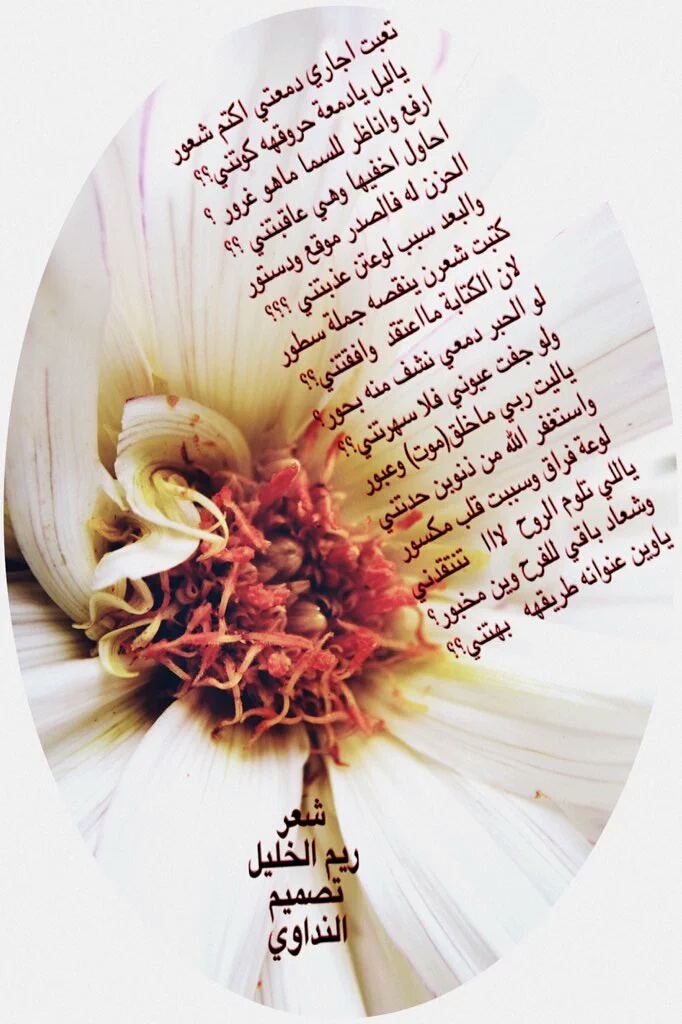 تعبت اجاري دمعتي اكتم شعور
ياليل يادمعة حروقهه كوتني؟؟
ارفع واناظر للسما ماهو غرور ؟
احاول اخفيها وهي عاقبتني ؟؟
الحزن له فالصدر موقع ودستور
والبعد سبب لوعتن عذبتني ؟؟؟
كتبت شعرن ينقصه جملة سطور
لان الكتابة مااعتقد وافقتني؟؟
لو الحبر دمعي نشف منه بحور؟
ولو جفت عيوني فلا سهرتني؟؟
ياليت ربي ماخلق(موت) وعبور
واستغفر الله من ذنوبن حدتني
لوعة فراق وسببت قلب مكسور
ياللي تلوم الروح لااا تنتقدني
وشعاد باقي للفرح وين مخبور؟
ياوين عنوانه طريقهه بهتني؟؟
شعر
ريم الخليل
تصميم
النداوي